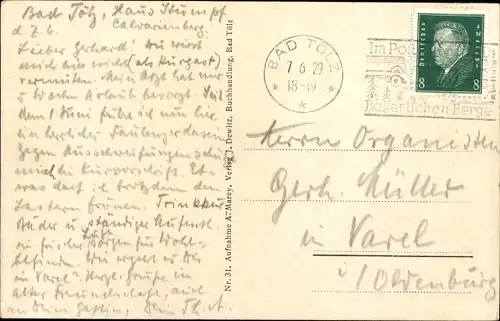 Bad Tölz, Haus Stumpf
d. 7. 6. Calvarienberg.
Lieber Gerhard! Du wirst
mich nur nicht (als Kurgast)
vermuten. Mein Arzt hat mir
5 Wochen Urlaub besorgt. Seit
dem 1. Juni führe ich nun hier
ein herrliches Faulenzerdasein
gegen Ausschweifungen
mich die Kurvorschrift. Et-
was darf ich trotzdem dem
Laster frönen. Trinkkur
Bäder u. ständiger Aufent.
in frischer Luft sorgen für Wohl-
befinden. Wie ergeht es Dir
in Varel? Herzl. Grüße in
alter Freundschaft, auch
an Deine Gattin, Dein Th. A.
Nr. 31. Aufnahme A. Marey, Verlag J. Dewitz, Buchhandlung, Bad Tölz
BAD TÖLZ
7 6 29
18-19
Im Po
Bayerischen Berge
Deutsches Reich
8 8
Herrn Organisten
Gerh. Müller
in Varel
i/Oldenburg